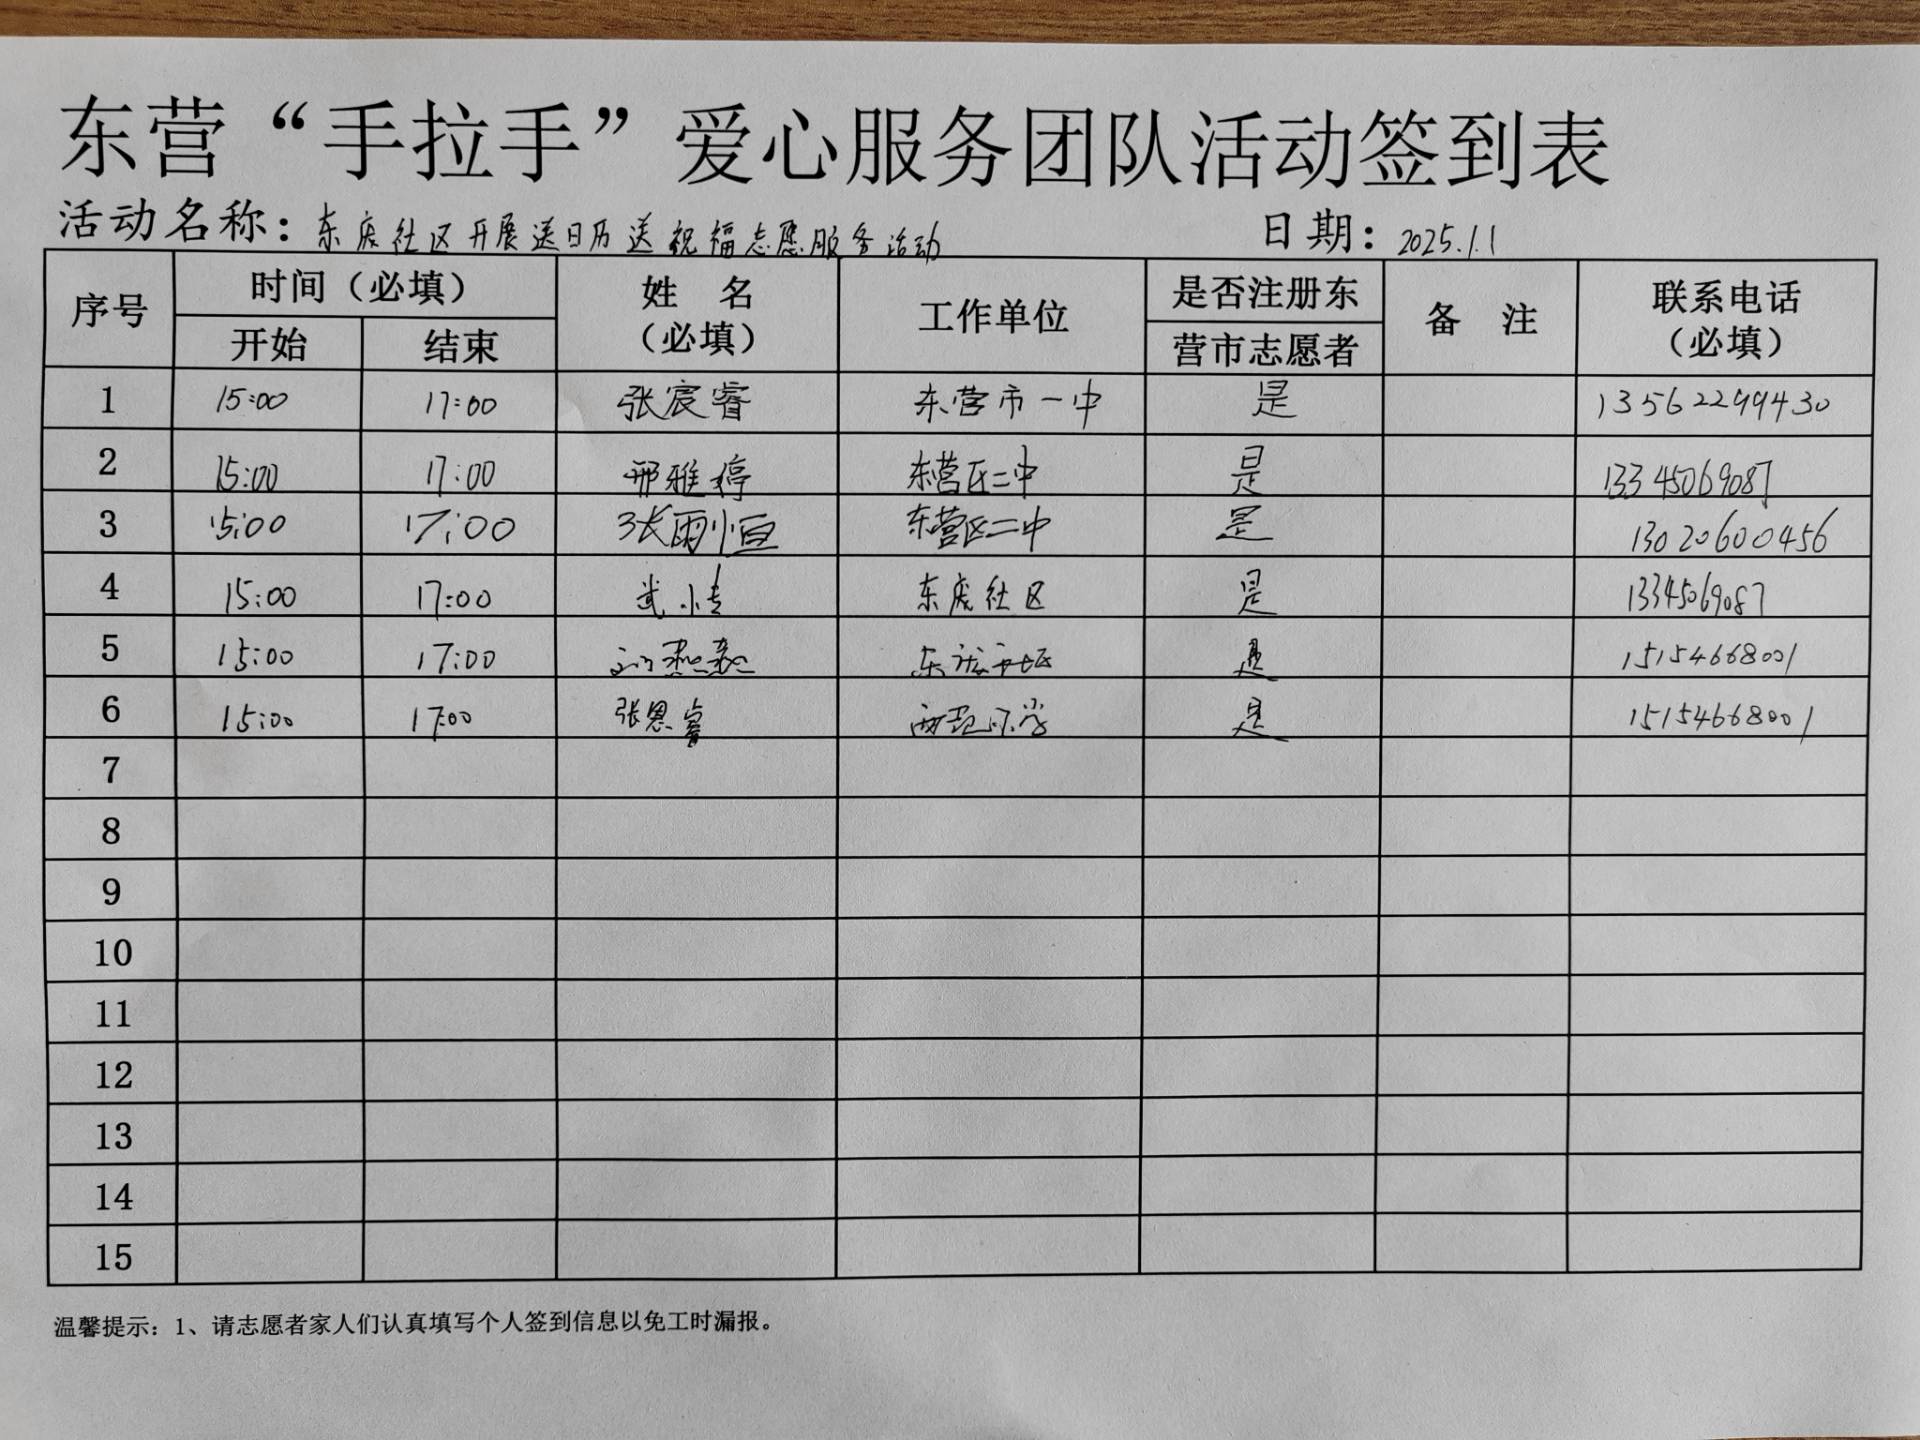 东营“手拉手”爱心服务团队活动签到表
活动名称：东虎社区开展送日历送祝福志愿服务活动 日期：2025.1.1
序号 时间（必填） 开始 结束 姓 名（必填） 工作单位 是否注册东营市志愿者 备 注 联系电话（必填）
1 15:00 17:00 张宸睿 东营市一中 是 13562299430
2 15:00 17:00 邢雅婷 东营区二中 是 13345069087
3 15:00 17:00 张雨恒 东营区二中 是 13020600456
4 15:00 17:00 武 东虎社区 是 13345069087
5 15:00 17:00 是 15154668001
6 15:00 17:00 张恩睿 小学 是 15154668001
7
8
9
10
11
12
13
14
15
温馨提示：1、请志愿者家人们认真填写个人签到信息以免工时漏报。